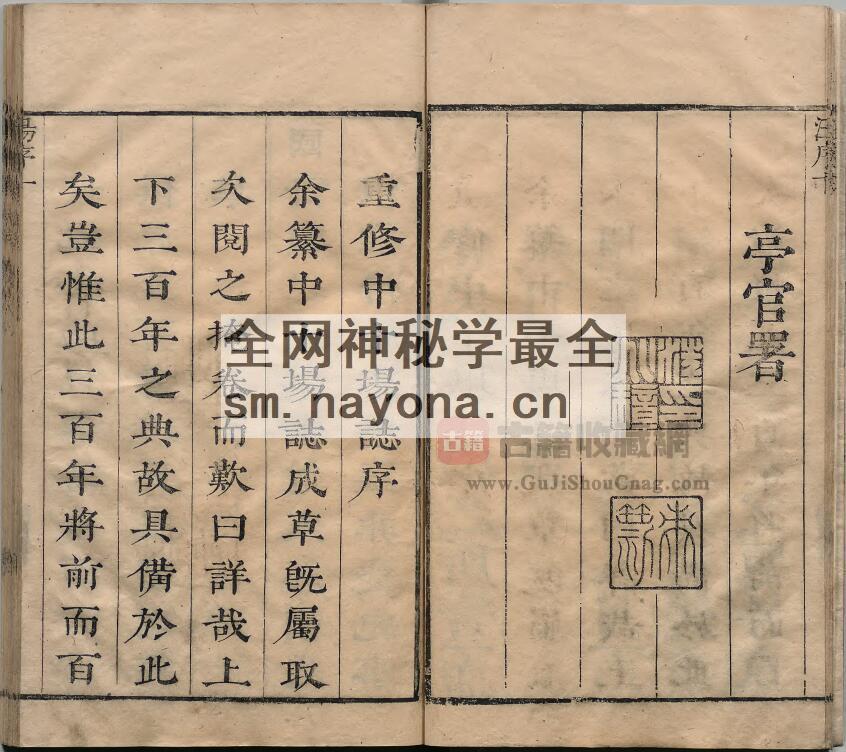 亭官署
重修中十場誌序
余纂中十場誌成草既屬取
次閱之掩卷而歎曰詳哉上
下三百年之典故具備於此
矣豈惟此三百年將前而百
全网神秘学最全
sm.nayona.cn
古籍
古籍收藏網
www.GuJiShouCnag.com